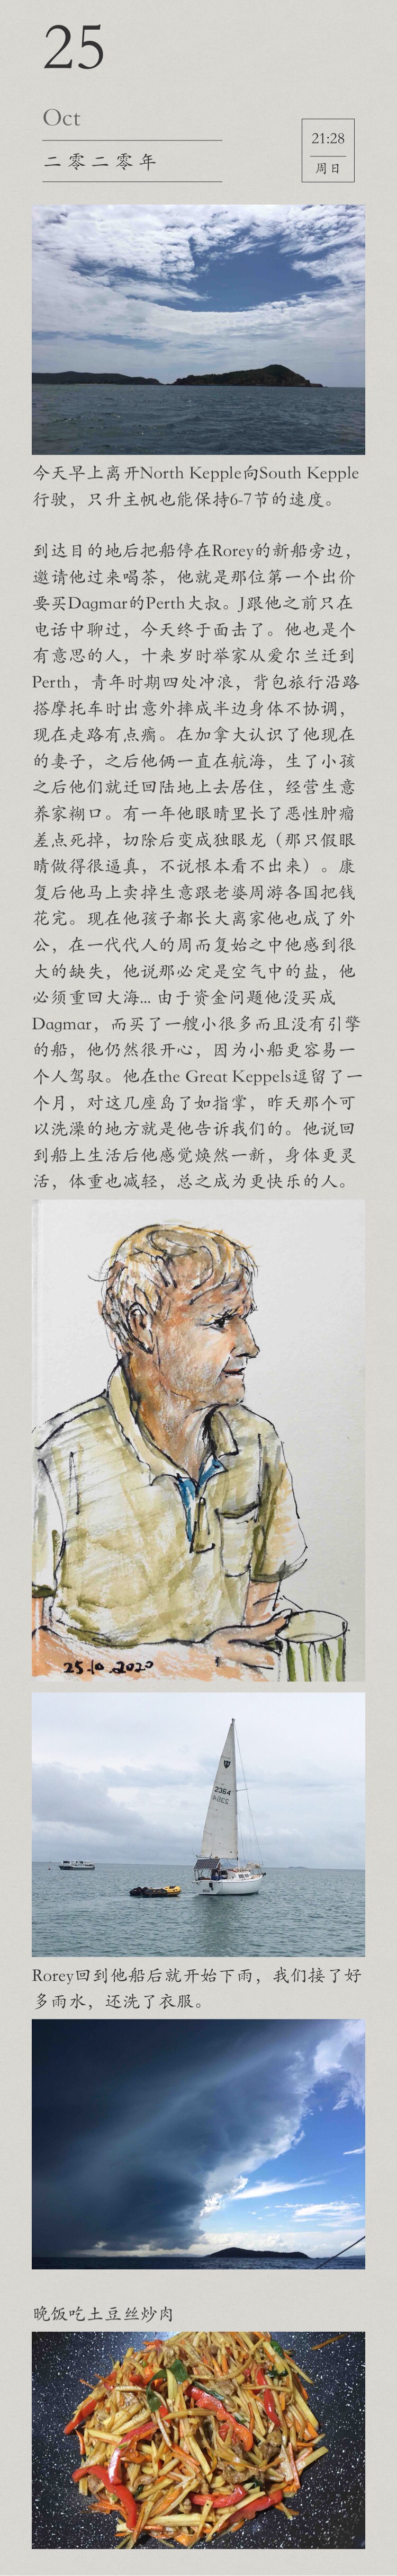 25
Oct
二零二零年
21:28
周日
今天早上离开North Kepple向South Kepple
行驶，只升主帆也能保持6-7节的速度。
到达目的地后把船停在Rorey的新船旁边，
邀请他过来喝茶，他就是那位第一个出价
要买Dagmar的Perth大叔。J跟他之前只在
电话中聊过，今天终于面击了。他也是个
有意思的人，十来岁时举家从爱尔兰迁到
Perth，青年时期四处冲浪，背包旅行沿路
搭摩托车时出意外摔成半边身体不协调，
现在走路有点瘸。在加拿大认识了他现在
的妻子，之后他俩一直在航海，生了小孩
之后他们就迁回陆地上去居住，经营生意
养家糊口。有一年他眼睛里长了恶性肿瘤
差点死掉，切除后变成独眼龙（那只假眼
睛做得很逼真，不说根本看不出来）。康
复后他马上卖掉生意跟老婆周游各国把钱
花完。现在他孩子都长大离家他也成了外
公，在一代代人的周而复始之中他感到很
大的缺失，他说那必定是空气中的盐，他
必须重回大海... 由于资金问题他没买成
Dagmar，而买了一艘小很多而且没有引擎
的船，他仍然很开心，因为小船更容易一
个人驾驭。他在the Great Keppels逗留了一
个月，对这几座岛了如指掌，昨天那个可
以洗澡的地方就是他告诉我们的。他说回
到船上生活后他感觉焕然一新，身体更灵
活，体重也减轻，总之成为更快乐的人。
25.10.2020
2364
Rorey回到他船后就开始下雨，我们接了好
多雨水，还洗了衣服。
晚饭吃土豆丝炒肉